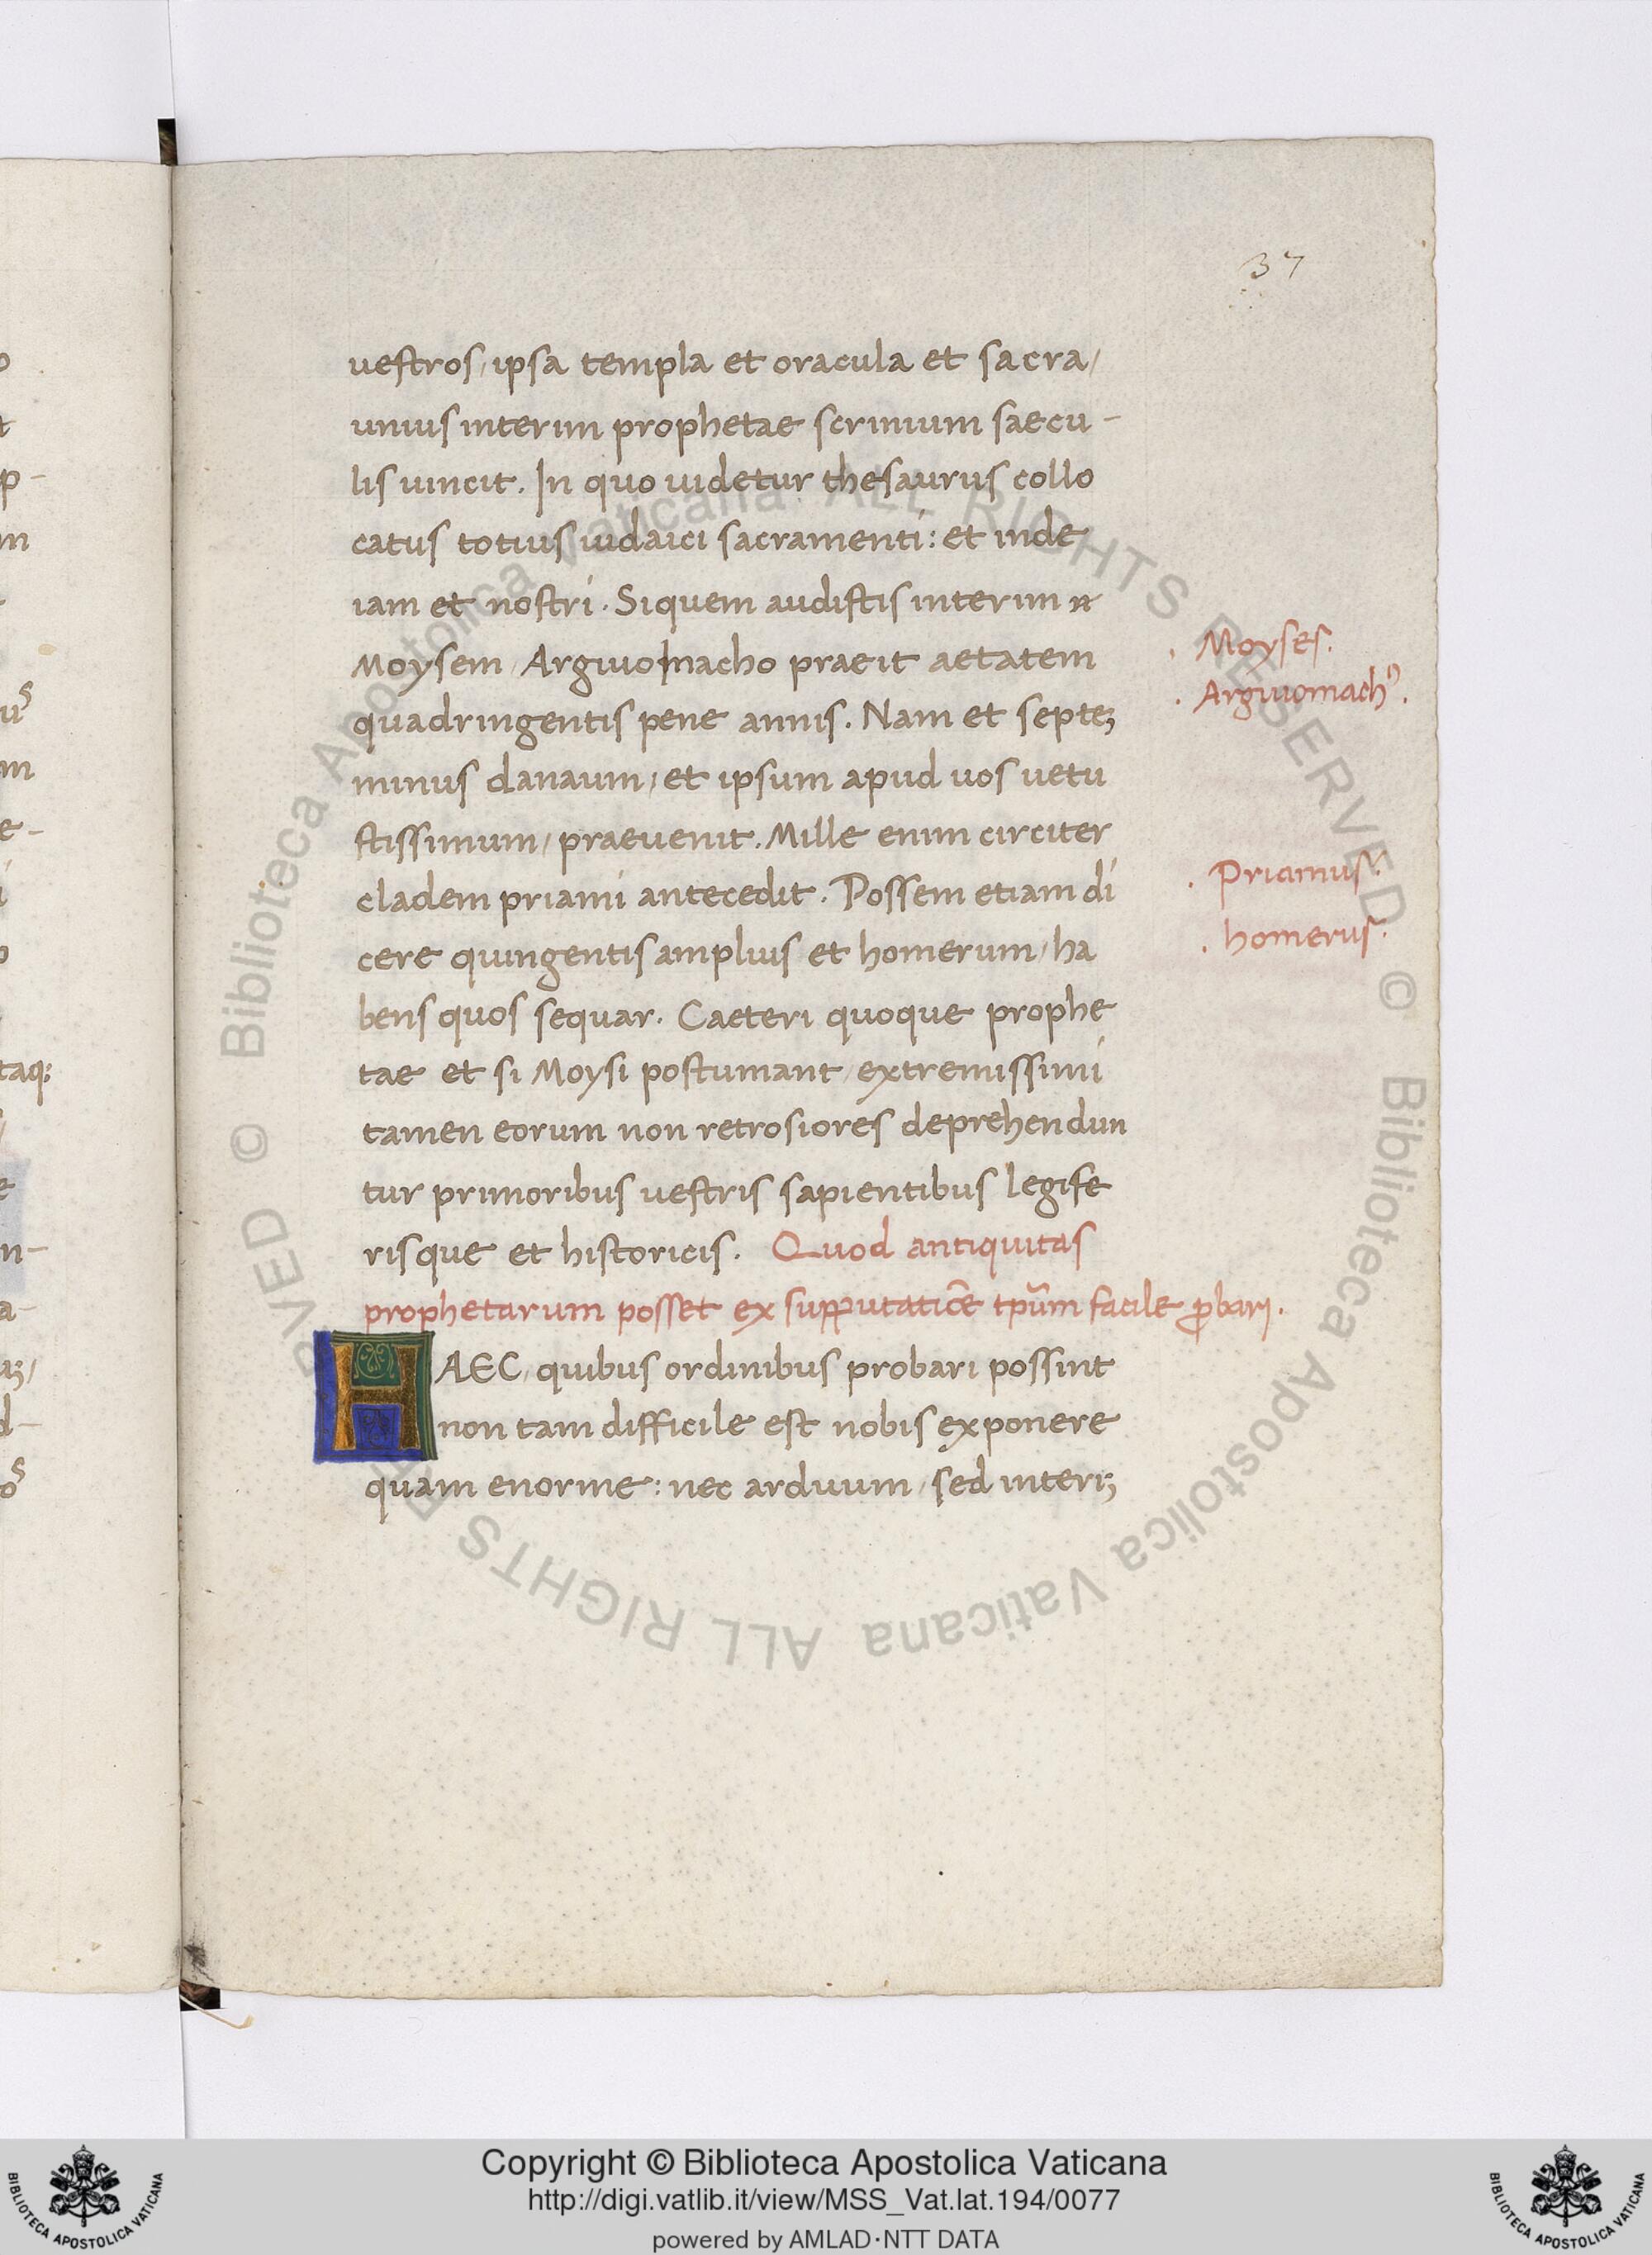 37
vestros, ipsa templa et oracula et sacra/
unius interim prophetae scrinium saecu-
lis uincit. In quo uidetur thesaurus collo
catus totius iudaici sacramenti: et inde
iam et nostri. Siquem audistis interim
Moysem, Argiuo macho praeit aetatem
quadringentis pene annis. Nam et septeꝫ
minus danaum, et ipsum apud uos uetu
stissimum, praeuenit. Mille enim circiter
cladem priami antecedit. Possem etiam di
cere quingentis amplius et homerum, ha
bens quos sequar. Caeteri quoque prophe
tae et si Moysi postumant, extremissimi
tamen eorum non retrosiores deprehendun
tur primoribus uestris sapientibus legife
risque et historicis. Quod antiquitas
prophetarum posset ex supputatiōe tpūm facile ꝓbari.
HAEC, quibus ordinibus probari possint
non tam difficile est nobis exponere
quam enorme: nec arduum, sed interiꝫ
. Moyses.
. Argiuomachꝰ.
. Priamus.
. homerus.
Copyright © Biblioteca Apostolica Vaticana
http://digi.vatlib.it/view/MSS_Vat.lat.194/0077
powered by AMLAD·NTT DATA
BIBLIOTECA APOSTOLICA VATICANA
BIBLIOTECA APOSTOLICA VATICANA
© Biblioteca Apostolica Vaticana ALL RIGHTS RESERVED © Biblioteca Apostolica Vaticana ALL RIGHTS RESERVED